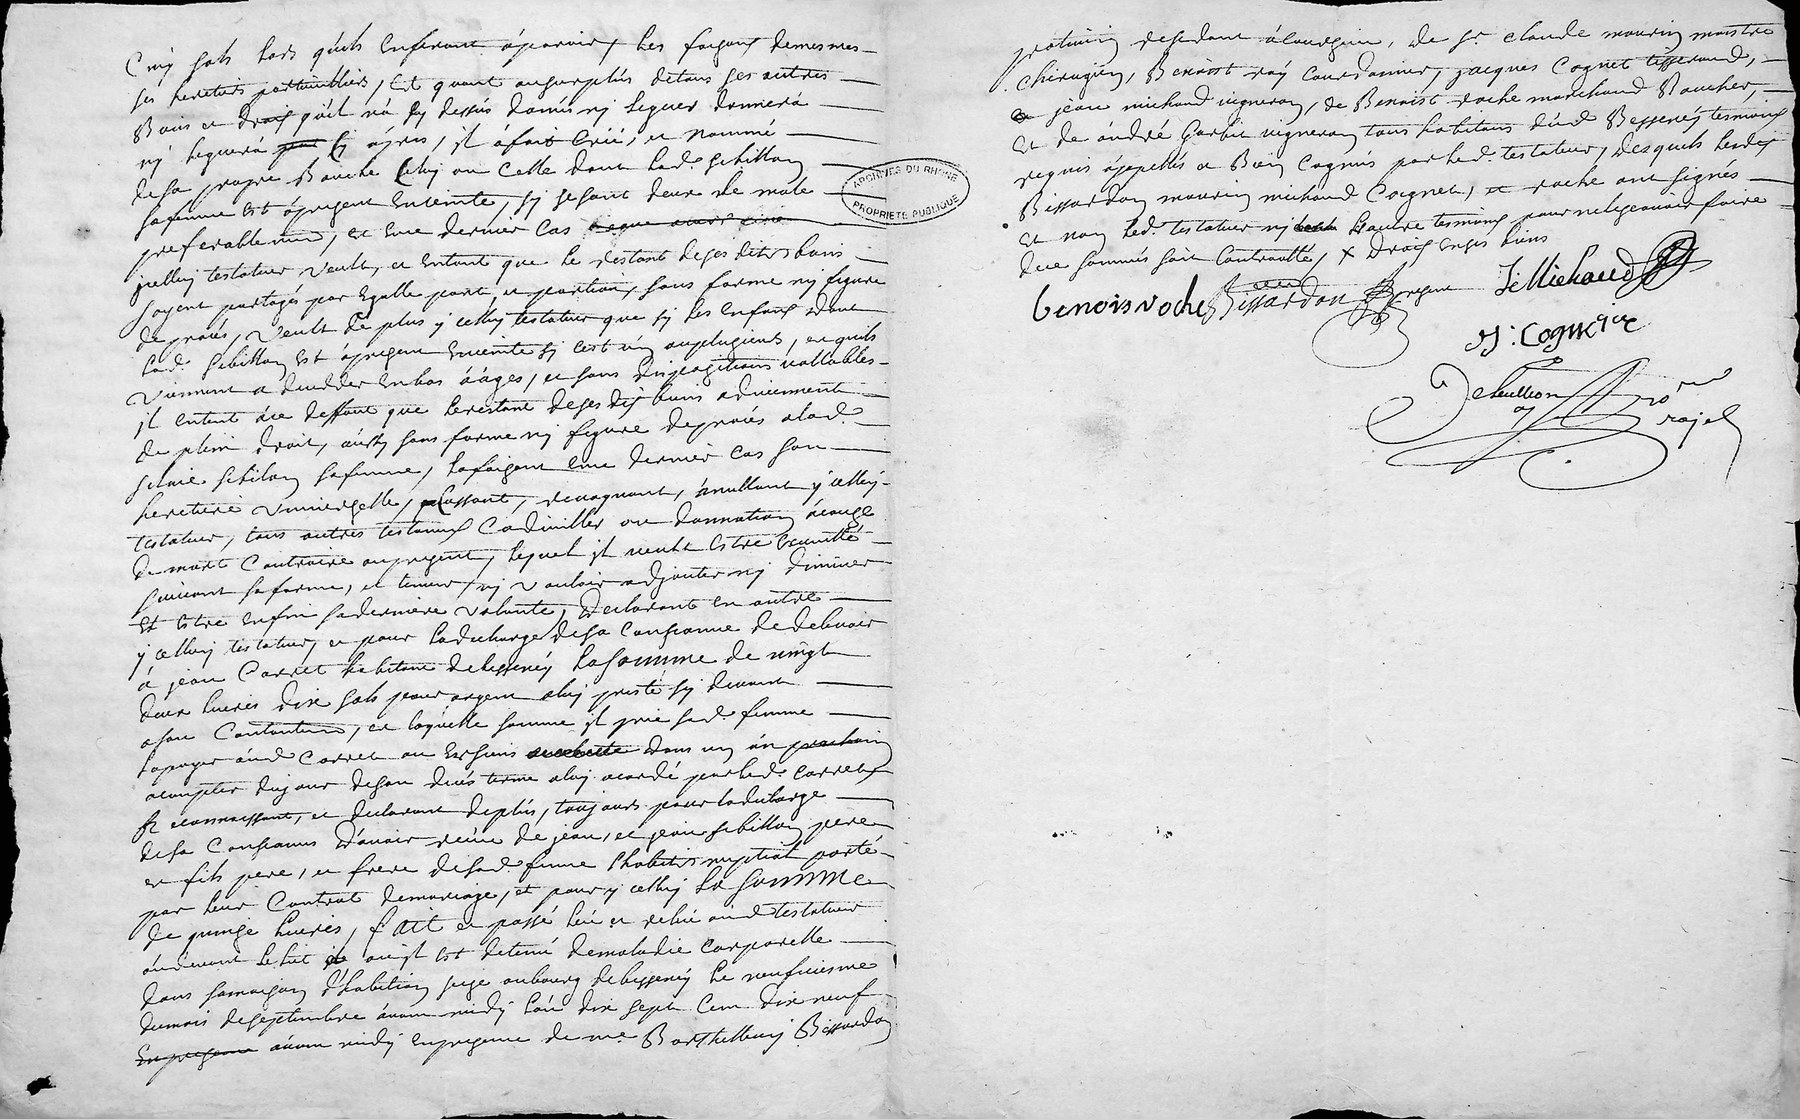 Cinq sols lors quils Enferont aparoir, les faisant demesmes
ses heretiers particulliers, Et quant ausurplus detous ses autres
Biens et drois quil n'a Cy dessus donnés ny leguer donnera
ny leguera Cy apres, il a fait Créé, et nommé
desa propre Bouche Celuy ou Celle dont lad. Sibillon
safemme Est apresent Enceinte, sy sesont deux le male
preferablement, et Eme dernier Cas
jcelluy testateur veult, et Entant que le restant deses dits biens
soyent partagés par Egalle part, et portion, sans forme ny figure
deproces, veult de plus ycelluy testateur que sy les Enfans dont
lad. Sibillon Est apresent Enceinte sy c'est un ouplusieurs, et quils
viennent a decedder Enbas aages, et sans dispositions vallables
il entent ace deffaut que lerestant deses dis biens adviennent
de plein droit, aussy sans forme ny figure deproces alad.
Sibillon safemme, lafaisant Eme dernier cas son
heretiere universelle, Cassant, revoquant, anullant ycelluy
testateur, tous autres testamens Codicilles ou donnation acause
de mort Contraire aupresent, lequel il veult Estre Executté
suivant saforme, et teneur, ny vouloir adjouter ny diminuer
Et Estre Enfin saderniere volonté, Declarant en outre
ycelluy testateur, et pour ladecharge desa Consianse dedebvoir
à jean Carret habitant debessenay lasomme de vingt
deux livres dix sols pour argent aluy presté cy devant
ason Contantement, et laquelle somme il prie sad. femme
lapayer aud Carret ou Essiens dans un an prochain
acompter dujour deson deces terme aluy acordé parled. Carret
reconnoissant, et declarant deplus, toujours pour ladecharge
desa Consianse d'avoir receu de jean, et jean Sibillon pere
et fils pere, et frere desad. femme lhabits nuptial porté
par leur Contrat demariage, et pour ycelluy La somme
de quinze livres, fait et passé leu et releu aud testateur
audevant le lict ou il Est detenu demaladie Corporelle
dans samaison d'habitation size aubourg debessenay le neufviesme
dumois deseptembre avant midy l'an dix sept Cent dix neuf
En presence avant midy Enpresence de me Barthellemy Bissardon
ARCHIVES DU RHONE
PROPRIETE PUBLIQUE
praticien residant , de Sr Claude mourin maistre
Chirugien, Benoist ray Courdonnier, jacques Cognet tisserand,
jean michaud vigneron, de Benoist roche marchand Boucher,
Et de andré Garbit vigneron tous habitans dud Bessenay tesmoins
requis appellés et Bien Cognus parled. testateur, desquels lesdis
Bissardon mourin michaud Coignet, et roche ont signés
Et non led. testateur ny l'autre tesmoins pour nelesçavoir faire
deue sommés soit Controullé, X Droits Enses biens
benois roche Bissardon present J Michaud
J. Cognet
Dehullion
no re
rojal